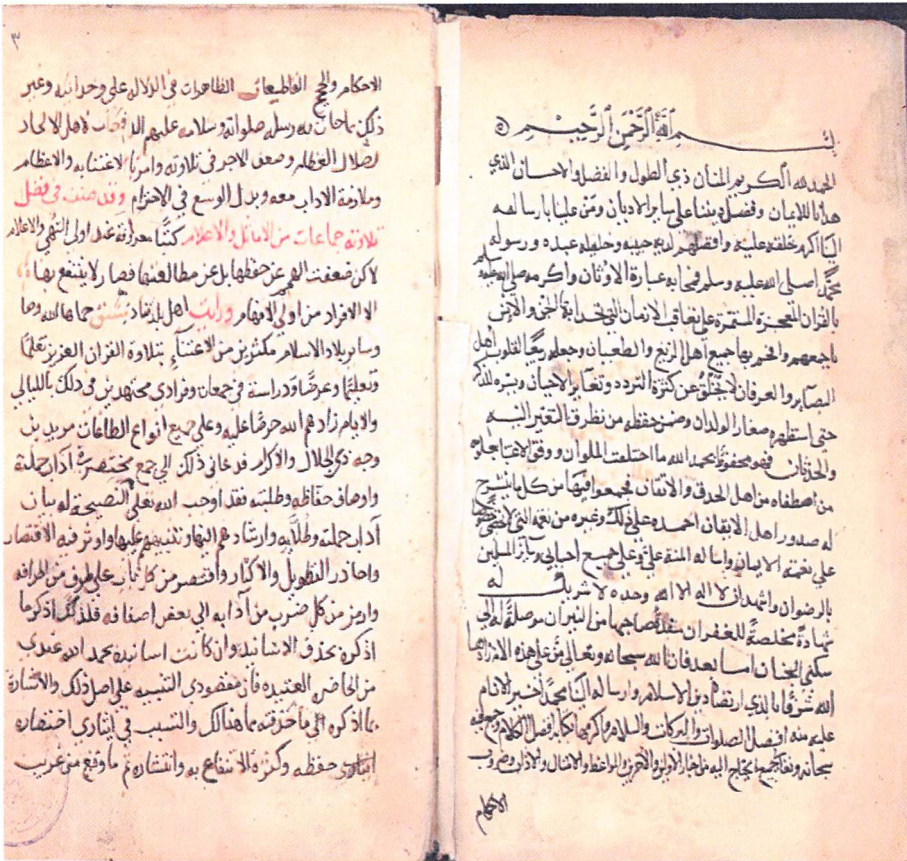 بسم الله الرحمن الرحيم
الحمد لله الكريم المنان ذي الطول والفضل والاحسان الذي
هدانا للايمان وفضل ديننا على ساير الاديان ومن علينا بارساله
الينا اكرم خلقه عليه وافضلهم لديه حبيبه وخليله عبده ورسوله
محمد صلى الله عليه وسلم فمحا به عبادة الاوثان واكرمه صلى الله عليه وسلم
بالقران المعجزة المستمرة على تعاقب الازمان التي تحدا بها الجن والانس
باجمعهم وافحم بها جميع اهل الزيغ والطغيان وجعله ربيعا لقلوب اهل
البصاير والعرفان لا يخلق عن كثرة التردد وتغاير الاحيان ويسره للذكر
حتى استظهره صغار الولدان وضمن حفظه من تطرق التغير اليه
والحدثان فهو محفوظ بحمد الله ما اختلفت الملوان ووفق للاعتنا بعلومه
من اصطفاه من اهل الحذق والاتقان فجمعوا فيها من كل ما ينشرح
له صدور اهل الايقان احمده على ذلك وغيره من نعمه التي لا تحصى
على نعمة الايمان واساله المنة علي وعلى جميع احبابي وساير المسلمين
بالرضوان واشهد ان لا اله الا الله وحده لا شريك له
شهادة مخلصة للغفران منقذة صاحبها من النيران موصلة له الى
سكنى الجنان اما بعد فان الله سبحانه وتعالى من على هذه الامة زادها
الله شرفا بالذي ارتضاه دين الاسلام وارساله الينا محمدا خير الانام
عليه منه افضل الصلوات والبركات والسلام واكرمها بكتابه افضل الكلام وجمع فيه
سبحانه وتعالى جميع ما يحتاج اليه من اخبار الاولين والاخرين والمواعظ والامثال والاداب وضروب
الاحكام
٣
الاحكام والحجج القاطعات الظاهرات في الدلالة على وحدانيته وغير
ذلك مما جات به رسله صلواته وسلامه عليهم الدامغات لاهل الالحاد
الضلال الطغام وضعف الاجر في تلاوته وامرنا بالاعتنا به والاعظام
وملازمة الاداب معه وبذل الوسع في الاحترام وقد صنف في فضل
تلاوته جماعات من الاماثل والاعلام كتبا معروفة عند اولى النهى والاعلام
لاكن ضعفت الهمم عن حفظها بل عن مطالعتها فصار لا ينتفع بها
الا الافراد من اولي الافهام ورايت اهل بلدتنا دمشق حماها الله وصا
وساير بلاد الاسلام مكثرين من الاعتناء بتلاوة القران العزيز تعلما
وتعليما وعرضا ودراسة في جماعات وفرادى مجتهدين في ذلك بالليالي
والايام زادهم الله حرصا عليه وعلى جميع انواع الطاعات مريدين
وجه ذي الجلال والاكرام فدعاني ذلك الى جمع مختصر في اداب حملته
واوصاف حفاظه وطلبته فقد اوجب الله تعالى النصيحة له بيان
آداب حملته وطلابه وارشادهم اليها وتنبيههم عليها واوثر فيه الاقتصار
واحاذر التطويل والاكثار واقتصر من كل باب على طرف من اطرافه
وارمز من كل ضرب من آدابه الى بعض اصنافه فلذلك اذكر ما
اذكره بحذف الاسانيد وان كانت اسانيده بحمد الله عندي
من الحاضر العتيدة فان مقصودي التنبيه على اصل ذلك والاشارة
بما اذكره الى ما حذفته مما هنالك والسبب في ايثاري اختصاره
ايثاري حفظه وكثرة الانتفاع به وانتشاره ثم ما وقع من غريب